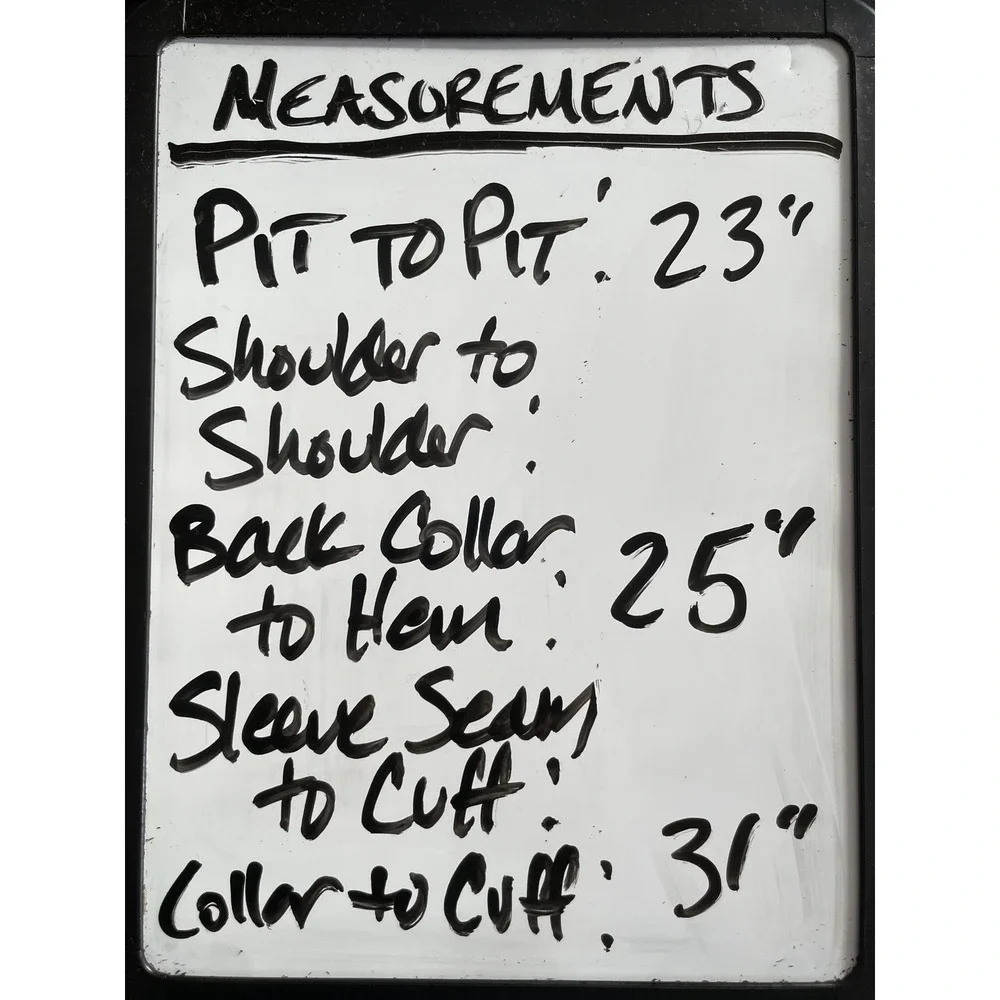 MEASUREMENTS
PIT TO PIT: 23"
Shoulder to
Shoulder:
Back Collar
to Hem: 25"
Sleeve Seam
to Cuff:
Collar to Cuff: 31"